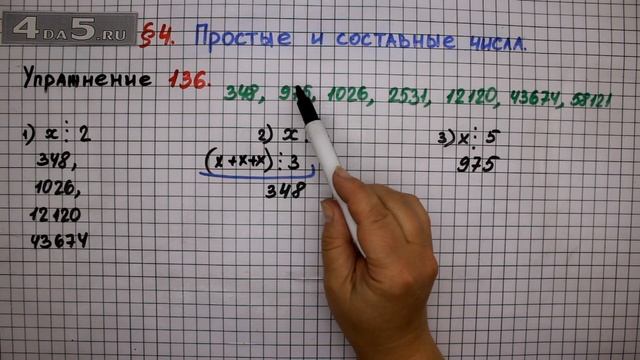 4DA5.RU
§4. Простые и составные числа.
Упражнение 136.
348, 975, 1026, 2531, 12120, 43674, 58121
1) x⋮2
348,
1026,
12120
43674
2) x
(x+x+x)⋮3
348
3) x⋮5
975